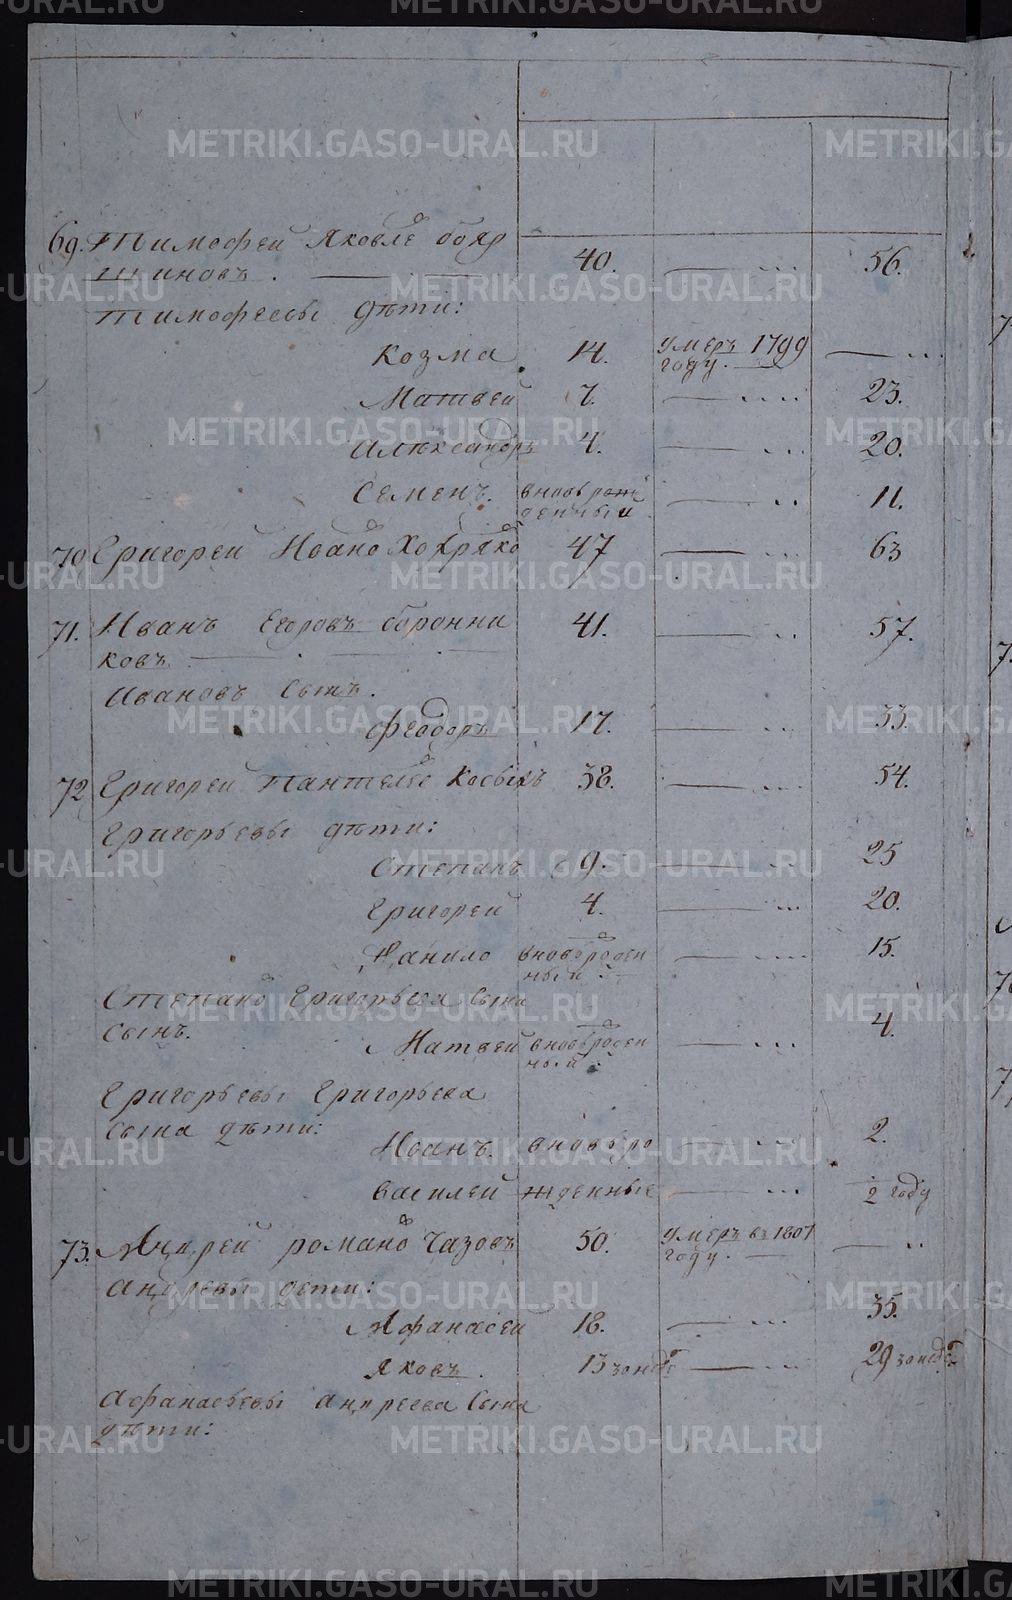 METRIKI.GASO-URAL.RU
69. Тимофей Яковле бояр 40. 56.
шиновъ.
Тимофеевы дѣти:
Козма 14. умеръ 1799
году.
Матвей 7. 23.
Алѣксандръ 4. 20.
Семенъ. вновьрож 11.
денный
70 Григорей Ивано Хохряко 47 63
71. Иванъ Егоровъ боронни 41. 57.
ковъ.
Ивановъ Сынъ.
Феодоръ 17. 33.
72 Григорей Пантелѣе Косыхъ 38. 54.
Григорьевы дѣти:
Степанъ 9. 25
Григорей 4. 20.
Данило вновьрожден 15.
ный
Степано Григорьева Сына
Сынъ.
Матвей вновьрожден 4.
ный
Григорьевы Григорьева
Сына дѣти:
Иванъ. вновьро 2.
Василей жденные 2 году
73. Андрей романо Чазовъ 50. умеръ въ 1807
году.
андревы дети:
Афанасей 18. 35.
яковъ. 13 29
Афанасьевы андреева Сына
дѣти: